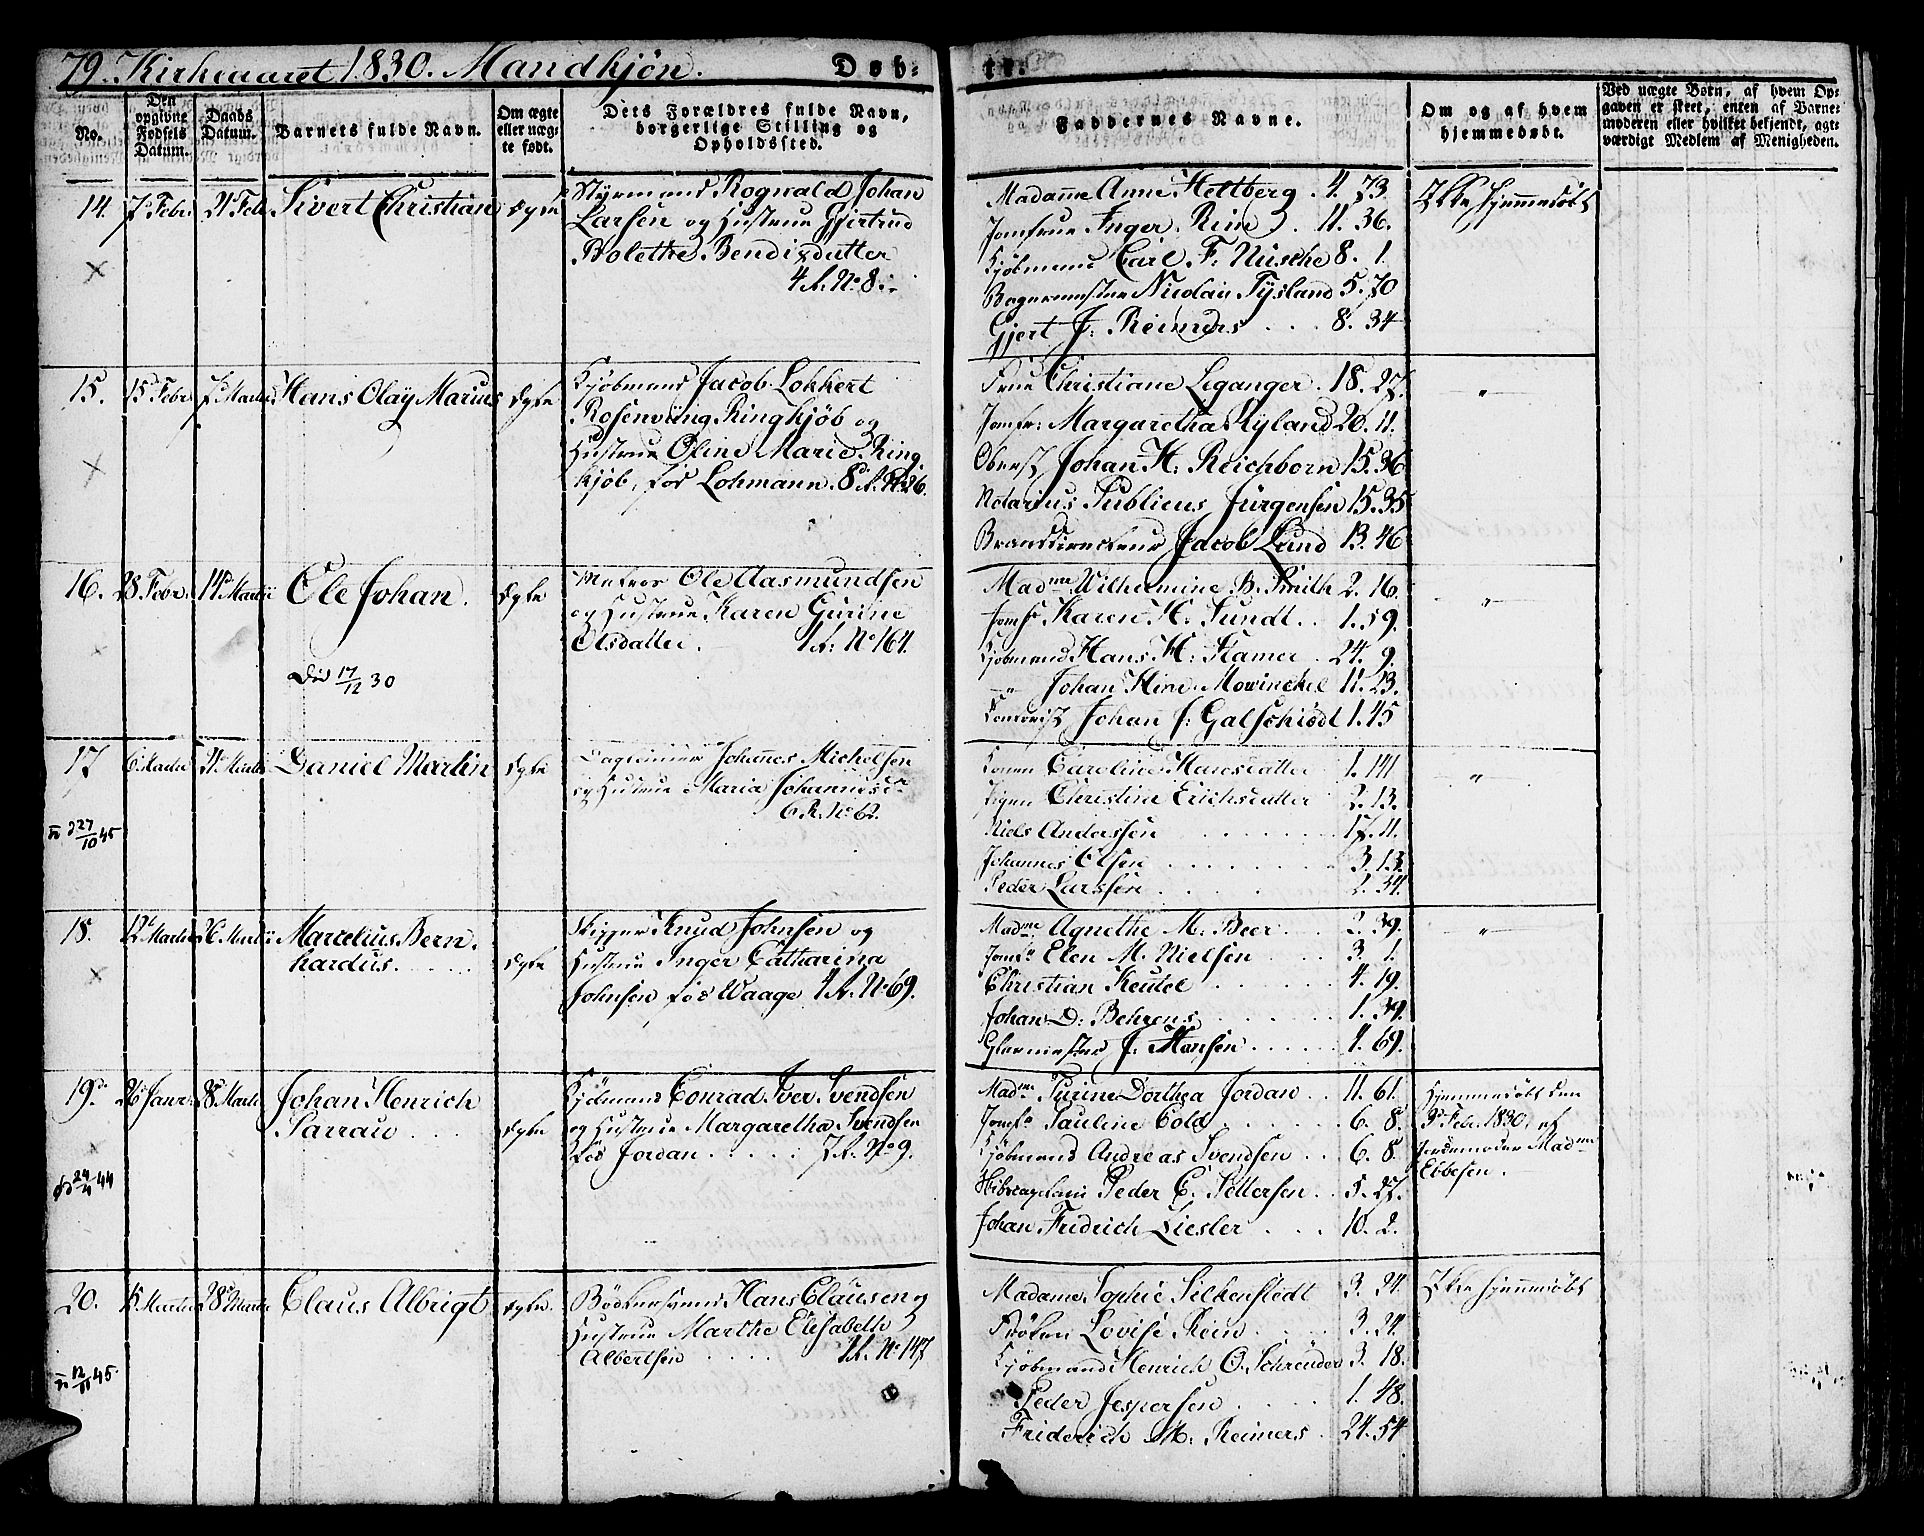 79. Kirkeaaret 1830. Mandkjön. Döb- te.
No.
Den opgivne Fødsels Datum.
Daabs Datum.
Barnets fulde Navn.
Om ægte eller uægte født.
Dets Forældres fulde Navn, borgerlige Stilling og Opholdssted.
Faddernes Navne.
Om og af hvem hjemmedøbt.
Ved uægte Børn, af hvem Opgaven er skeet, enten af Barnemoderen eller hvilket bekjendt, agtværdigt Medlem af Menigheden.
14. 7de Febr. 21 Febr Sivert Christian Ægte
Styrmand Rognald Johan
Larsen og Hustrue Gjertrud
Bolethe Bendixdatter
4 R. No 8.
Madame Anne Heltberg . 4. 73.
Jomfrue Inger Rein . 11. 36.
Kjøbmand Carl F. Nusche 8. 1.
Bagermester Nicolai Tysland 5. 70
Gjert J. Reimers . . . 8. 34
Ikke hjemmedøbt
15. 15 Febr. 7 Martii Hans Olay Marius Ægte
Kjøbmand Jacob Lokkert
Rosenviing Ringkjöb og
Hustrue Oline Marie Ring
kjöb, föd Lohmann. 8 R. No 26.
Frue Christiane Leganger . 18. 27.
Jomfr: Margaretha Nyland 20. 11.
Oberst Johan H. Reichborn 15. 36
Notarius Publicus Jürgensen 15. 35
Branddirecteur Jacob Lund 13. 46
"
16. 28 Febr. 14 Martii Ole Johan. Ægte
Död 17/12 30
Matros Ole Aasmundsen
og Hustrue Karen Gurine
Olsdatter. 1 R. No 164.
Madme Wilhelmine B. Smith 2. 16.
Jomfr Karen H. Sundt . . 1. 59.
Kjøbmand Hans H. Flamer . 24. 9.
" Johan Hinr. Mowinckel 11. 23.
Contorist Johan J. Galschiödt 1. 45
"
17 6 Martii 21 Martii Daniel Martin Ægte
Dagleier Johannes Michelsen
og Hustrue Maria Johannesd.
6 R. No 62.
Konen Caroline Haresdatter 1. 141
Pigen Christine Erichsdatter 2. 13.
Niels Anderssen . . . 17. 11.
Johannes Olsen . . . 3. 13.
Peder Larssen . . . 2. 34.
"
27/10 45
18. 12 Martii 26 Martii Marcelius Bern-
hardus. Ægte
Skipper Knud Johnsen og
Hustrue Inger Catharina
Johnsen föd Waage 1 R. No 69.
Madme Agnethe M. Beer . . 2. 39.
Jomfr Elen M. Nielsen . . . 3. 1.
Christian Keutel . . . 4. 19.
Johan D. Behrens . . . 1. 39.
Glarmester J. Hansen . . . 1. 69.
"
19. 26 Janr. 28 Martii Johan Henrich
Sarrau Ægte
Kjöbmand Conrad Iver Svendsen
og Hustrue Margaretha Svendsen
föd Jordan . . . 7 R. No 9.
Madme Turine Dorthea Jordan . 11. 61.
Jomfr Pauline Cold . . . 6. 8.
Kjøbmand Andreas Svendsen . . 6. 8
Peder C. Pettersen . . 5. 27.
Johan Fridrich Liesler . . . 10. 2.
Hjemmedøbt den
3 Febr. 1830, af
Jordemoder Madme
Ebbesen.
24/4 44
20. 5 Martii 28 Martii Claus Albrigt Ægte.
Bödkersvend Hans Clausen og
Hustrue Marthe Elisabeth
Albertsen . . . 1 R. No 147
Madame Sophie Silkenstedt 3. 24.
Fröken Lovise Rein . . . 3. 24.
Kjøbmand Henrich O. Schreuder 3. 18.
Peder Jespersen . . . 1. 48.
Friderich M. Reimers . 24. 54
Ikke hjemmedøbt
12/11 45